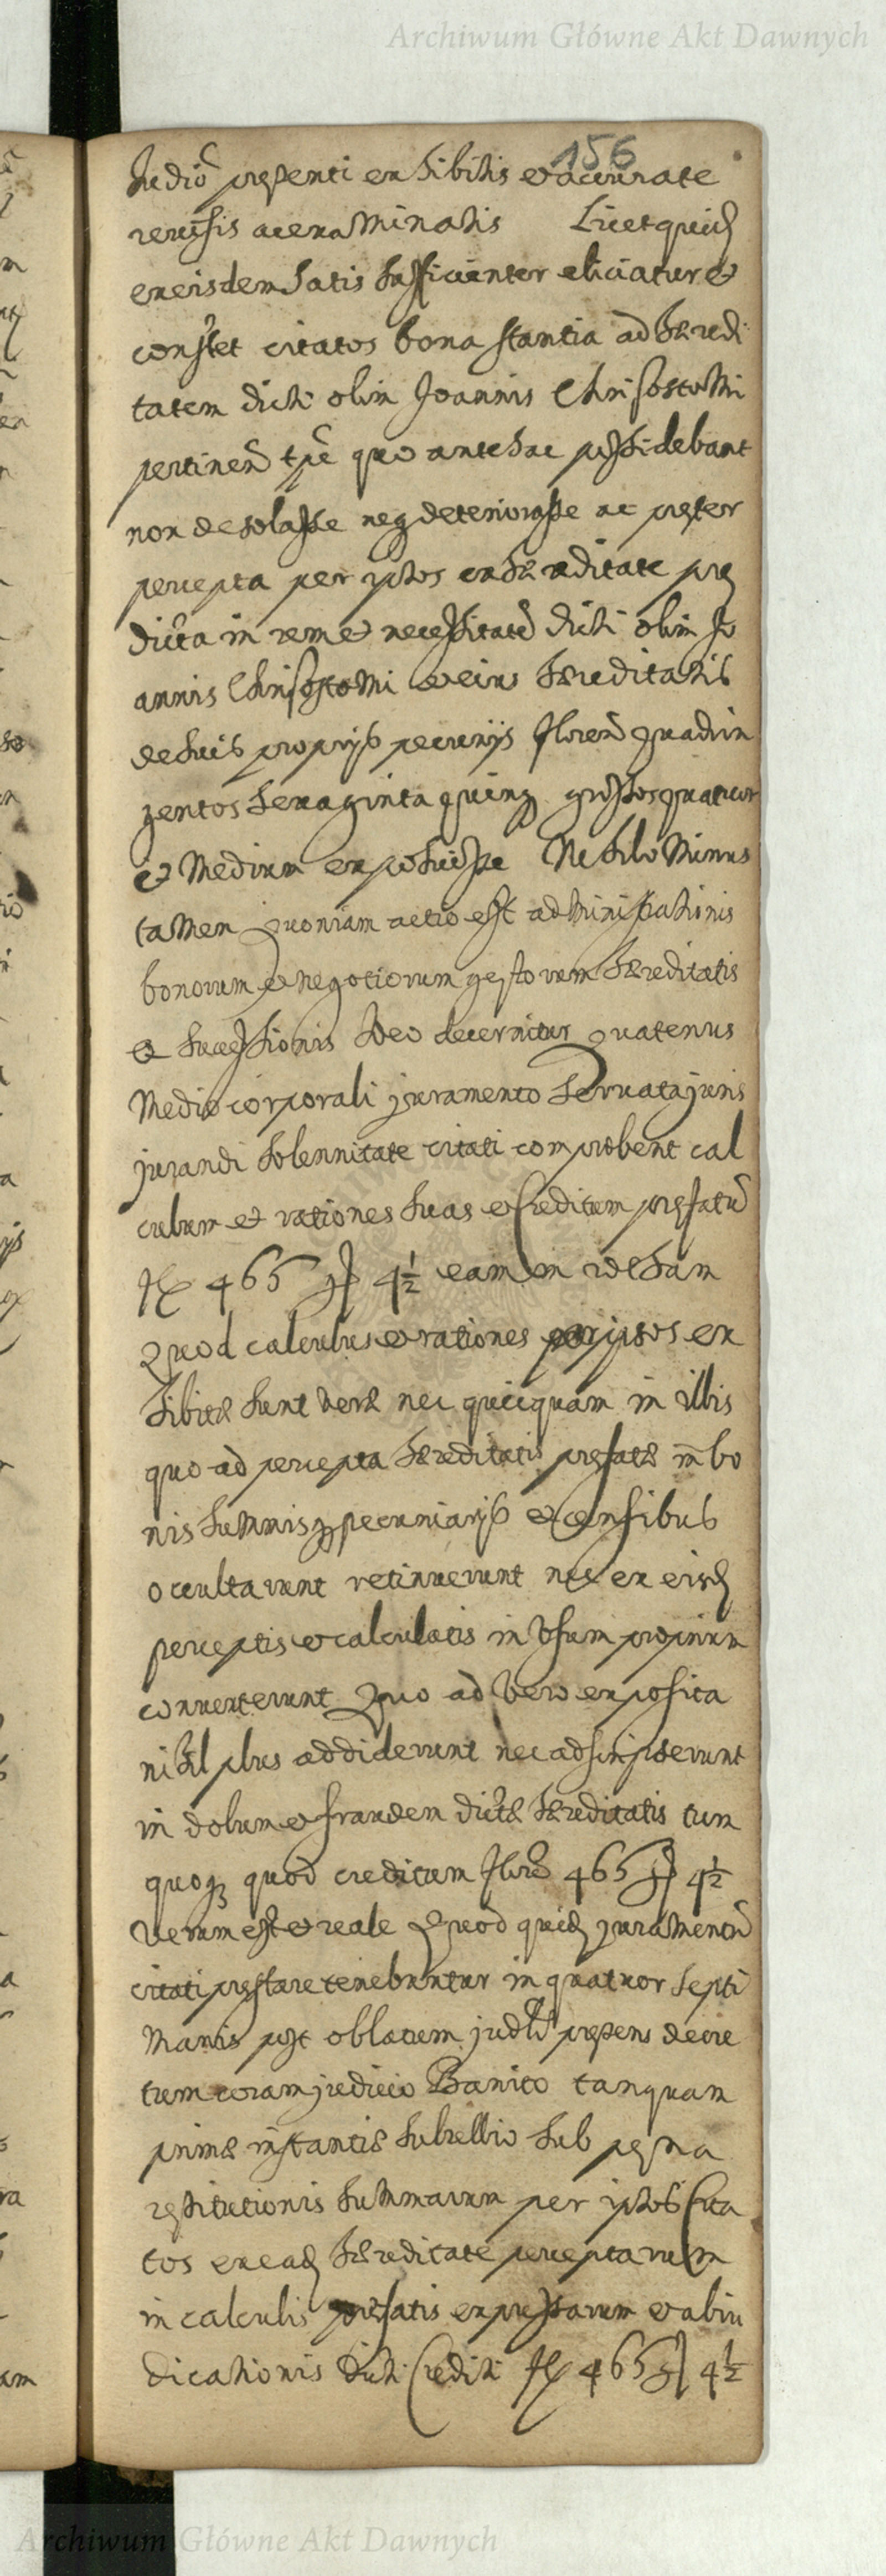 Archiwum Główne Akt Dawnych
156
Iudiō presenti exhibitis et accurate
revisis ac examinatis Licet quid
ex eisdem satis sufficienter eliciatur et
constet citatos bona stantia ad hæredi
tatem dicti olim Joannis Chrisostomi
pertinen tpe quo antehac possidebant
non desolasse neq deteriorasse ac preter
percepta per ipsos ex hæreditate præ
dicta in rem et necessitatē dicti olim Jo
annis Chrisostomi et eius hæreditatis
de suis proprijs pecunijs floren quadrin
gentos sexaginta quinq grossos quatuor
et medium exposuisse Nihilominus
tamen quoniam actio est administrationis
bonorum et negotiorum gestorum hæreditatis
et successionis Ideo decernitur quatenus
medio corporali juramento servata juris
jurandi solennitate citati comprobent cal
culum et rationes suas et Creditum præfatū
fl 465 gr 4½ eam in rotham
Quod calculus et rationes per ipsos ex
hibitæ sunt veræ nec quicquam in illis
quo ad percepta hæreditatis præfatæ in bo
nis summisq pecuniarijs et censibus
occultarunt retinuerunt nec ex eisd
perceptis et calculatis in usum proprium
converterunt Quo ad vero exposita
nihil plus addiderunt nec adscripserunt
in dolum et fraudem dictæ hæreditatis tum
quoq quod creditum flore 465 gr 4½
verum est et reale Quod quid juramentū
citati præstare tenebuntur in quatuor septi
manis post oblatum judli præsens decre
tum coram judicio Banito tanquam
primæ instantiæ subsellio sub pæna
restitutionis summarum per ipsos Cita
tos ex ead hæreditate perceptarum
in calculis præfatis expressarum et abiu
dicationis dicti Crediti fl 465 gr 4½
Archiwum Główne Akt Dawnych